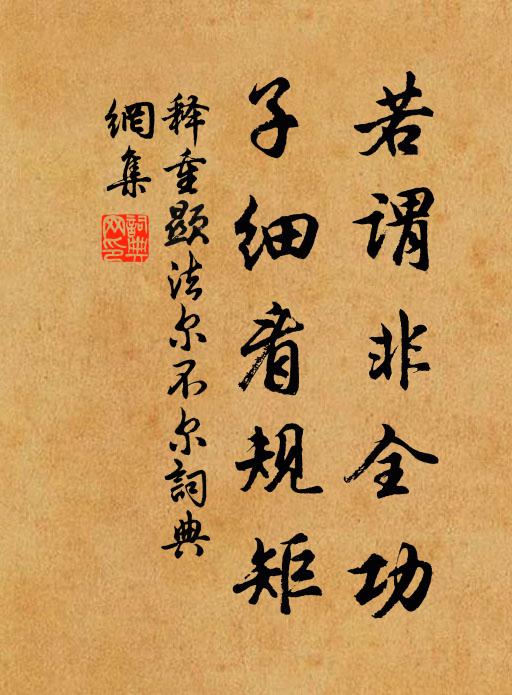 若谓非全功
子细看规矩
释重显法尔不尔詞典
網集
詞典
网印